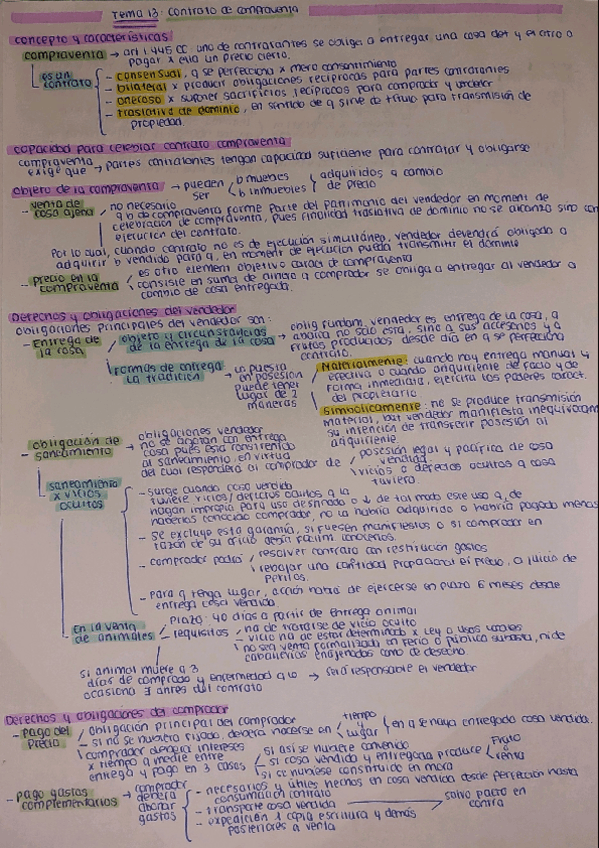 Tema 13: Contrato de compraventa
concepto y características
compraventa → art 1.445 CC uno de contratantes se obliga a entregar una cosa det y el otro a
pagar x ella un precio cierto.
es un
contrato
- consensual, q se perfecciona x mero consentimiento
- bilateral x producir obligaciones recíprocas para partes contratantes
- oneroso x suponer sacrificios recíprocos para comprador y vendedor
- traslativo de dominio, en sentido de q sirve de título para transmisión de
propiedad.
capacidad para celebrar contrato compraventa
compraventa
exige que → partes contratantes tengan capacidad suficiente para contratar y obligarse
objeto de la compraventa → pueden
ser
b muebles
b inmuebles
adquiridos a cambio
de precio
- venta de
cosa ajena
no necesario
q b de compraventa forme parte del patrimonio del vendedor en moment de
celebración de compraventa, pues finalidad traslativa de dominio no se alcanza sino con
ejecución del contrato.
Por lo cual, cuando contrato no es de ejecución simultánea, vendedor devendrá obligado a
adquirir b vendido para q, en moment de ejecución pueda transmitir el dominio
- precio en la
compraventa
es otro element objetivo caract de compraventa
consiste en suma de dinero q comprador se obliga a entregar al vendedor a
cambio de cosa entregada.
Derechos y obligaciones del vendedor
obligaciones principales del vendedor son:
- Entrega de
la cosa
objeto y circunstancias
de la entrega de la cosa
→ oblig fundam vendedor es entrega de la cosa, q
abarca no sólo esta, sino a sus accesorios y a
frutos producidos desde día en q se perfecciona
contrato.
formas de entrega
la tradición
→ la puesta
en posesión
puede tener
lugar de 2
maneras
Materialmente: cuando hay entrega manual y
efectiva o cuando adquirente de facto y de
forma inmediata, ejercita los poderes caract.
del propietario
Simbólicamente: no se produce transmisión
material, but vendedor manifiesta inequívocam
su intención de transferir posesión al
adquirente
- obligación de
saneamiento
obligaciones vendedor
no se agotan con entrega
cosa pues está constreñido
al saneamiento en virtud
del cual responderá al comprador de
posesión legal y pacífica de cosa
vendida.
vicios o defectos ocultos q cosa
tuviera
saneamiento
x vicios
ocultos
- surge cuando cosa vendida
tuviere vicios/defectos ocultos q la
hagan impropia para uso destinado o ↓ de tal modo este uso q, de
haberlos conocido comprador, no la habría adquirido o habría pagado menos
- se excluye esta garantía, si fuesen manifiestos o si comprador en
razón de su oficio debía fácilm conocerlos.
- comprador podrá
resolver contrato con restitución gastos
rebajar una cantidad proporcional el precio, a juicio de
peritos.
- para q tenga lugar, acción habrá de ejercerse en plazo 6 meses desde
entrega cosa vendida
en la venta
de animales
Plazo: 40 días a partir de entrega animal
requisitos
- ha de tratarse de vicio oculto
- vicio ha de estar determinado x Ley o usos locales
no sea venta formalizada en feria o pública subasta, ni de
caballerías enajenadas como de desecho
si animal muere a 3
días de comprado y enfermedad q lo
ocasiona ∃ antes del contrato
→ será responsable el vendedor
Derechos y obligaciones del comprador
- pago del
precio
obligación principal del comprador
- si no se hubiera fijado, deberá hacerse en
tiempo
y
lugar
en q se haya entregado cosa vendida.
comprador deberá intereses
x tiempo q medie entre
entrega y pago en 3 casos
si así se hubiere convenido
si cosa vendida y entregada produce
fruto
o
renta
si se hubiese constituido en mora
- pago gastos
complementarios
→ comprador
deberá
abonar
gastos
- necesarios y útiles hechos en cosa vendida desde perfección hasta
consumación contrato
- transporte cosa vendida
- expedición 1ª copia escritura y demás
posteriores a venta
salvo pacto en
contra